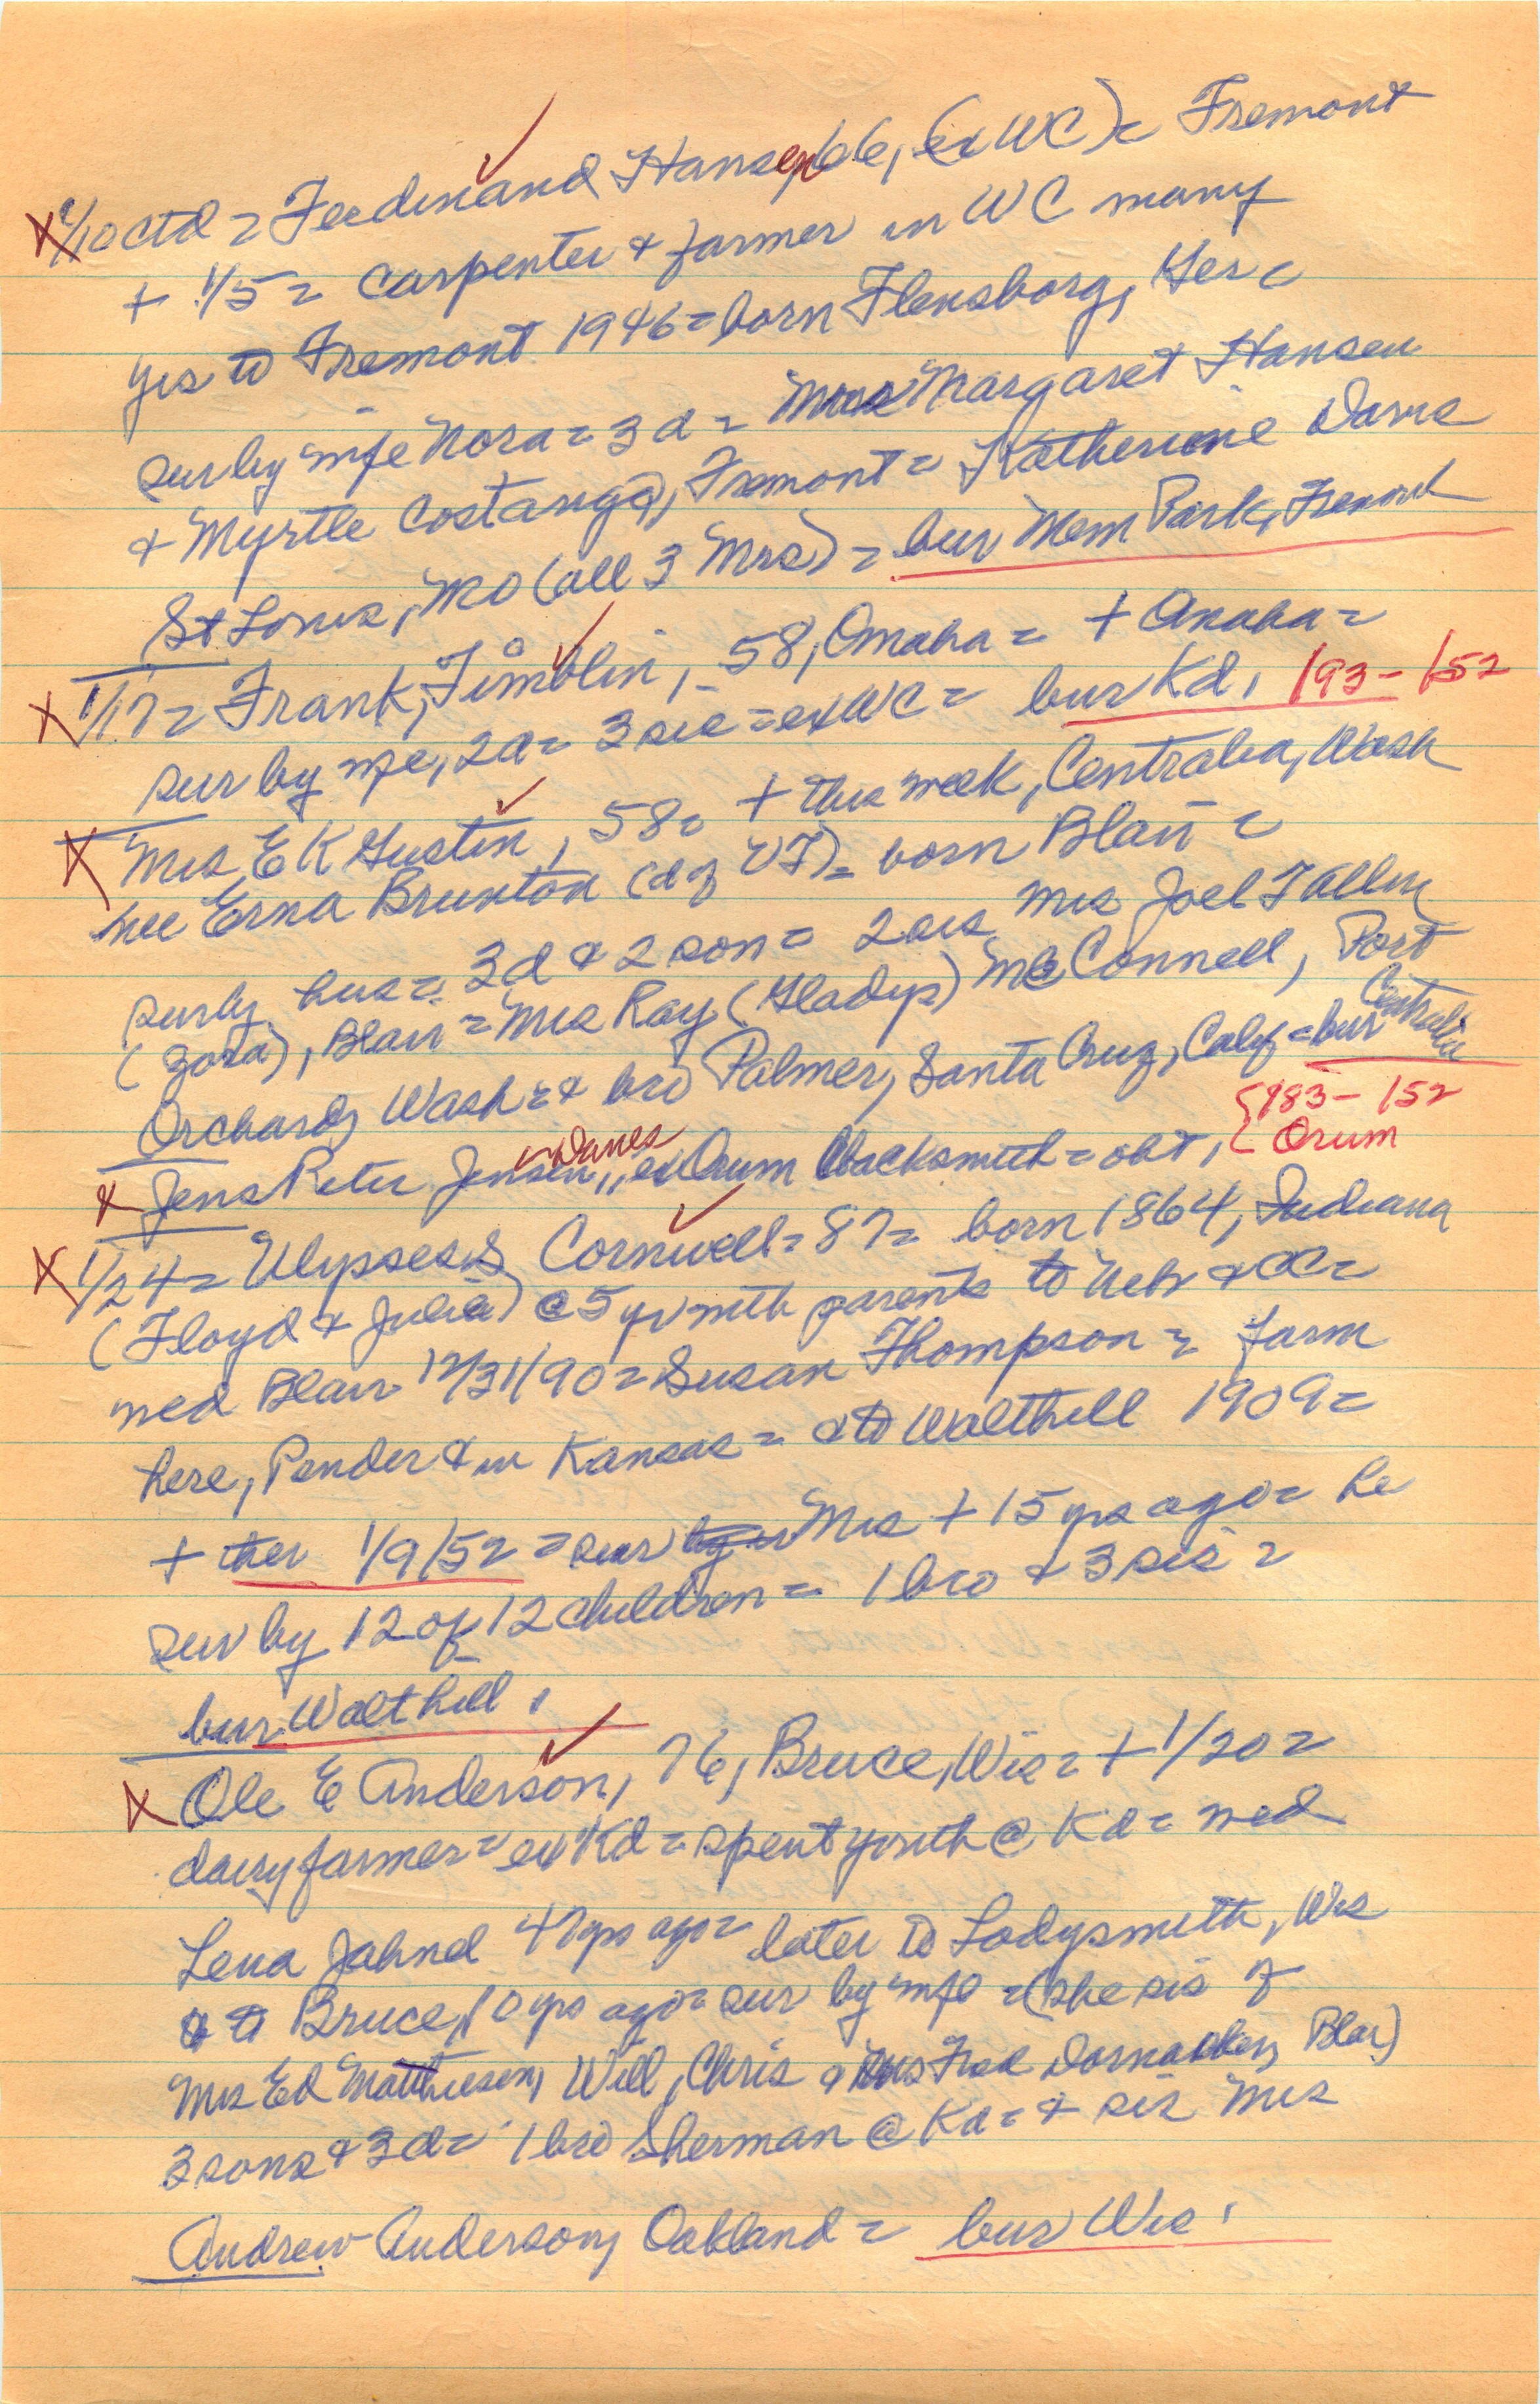 X 1/10 ctd = Ferdinand Hansen, 66, (ex WC) = Fremont
+ 1/5 = carpenter & farmer in WC many
yrs to Fremont 1946 = born Flensborg, Ger =
sur by wife Nora = 3 d = Margaret Hansen
& Myrtle Costanga, Fremont = Katherine Davis
St Louis, MO (all 3 Mrs) = bur Mem Park, Fremont
X 1/17 = Frank Timblin, 58, Omaha = + Omaha =
sur by wfe, 2d = 3 sis = ex WC = bur Kd, 193-152
X Mrs E K Gustin, 58 = + this week, Centralia, Wash
nee Erna Brunton (d of VT) = born Blair =
sur by hus = 3d & 2 son = 2 sis Mrs Joel Tallin
(Zora), Blair = Mrs Ray (Gladys) McConnell, Port
Orchard, Wash = & bro Palmer, Santa Cruz, Calif = bur Centralia
X Jens Peter Jensen, Danes, ex Orum blacksmith = obt, { 183-152 Orum
X 1/24 = Ulysses S Cornwell = 87 = born 1864, Indiana
(Floyd & Julia) @ 5 yr with parents to Neb &
med Blair 12/31/90 = Susan Thompson = farm
here, Pender & in Kansas = & to Walthill 1909 =
+ ther 1/9/52 = sur by Mrs + 15 yrs ago = he
sur by 12 of 12 children = 1 bro & 3 sis =
bur Walthill,
X Ole E Anderson, 76, Bruce, Wis = + 1/20 =
dairy farmer = ex Kd = spent youth @ Kd = med
Lena Jahnel 47 yrs ago = later to Ladysmith, Wis
& to Bruce, 10 yrs ago = sur by wife = (she sis of
Mrs Ed Matthiesen, Will, Chris & Mrs Fred Dornacker, Blair)
3 sons & 3d = 1 bro Sherman @ Kd = & sis Mrs
Andrew Anderson, Oakland = bur Wis,